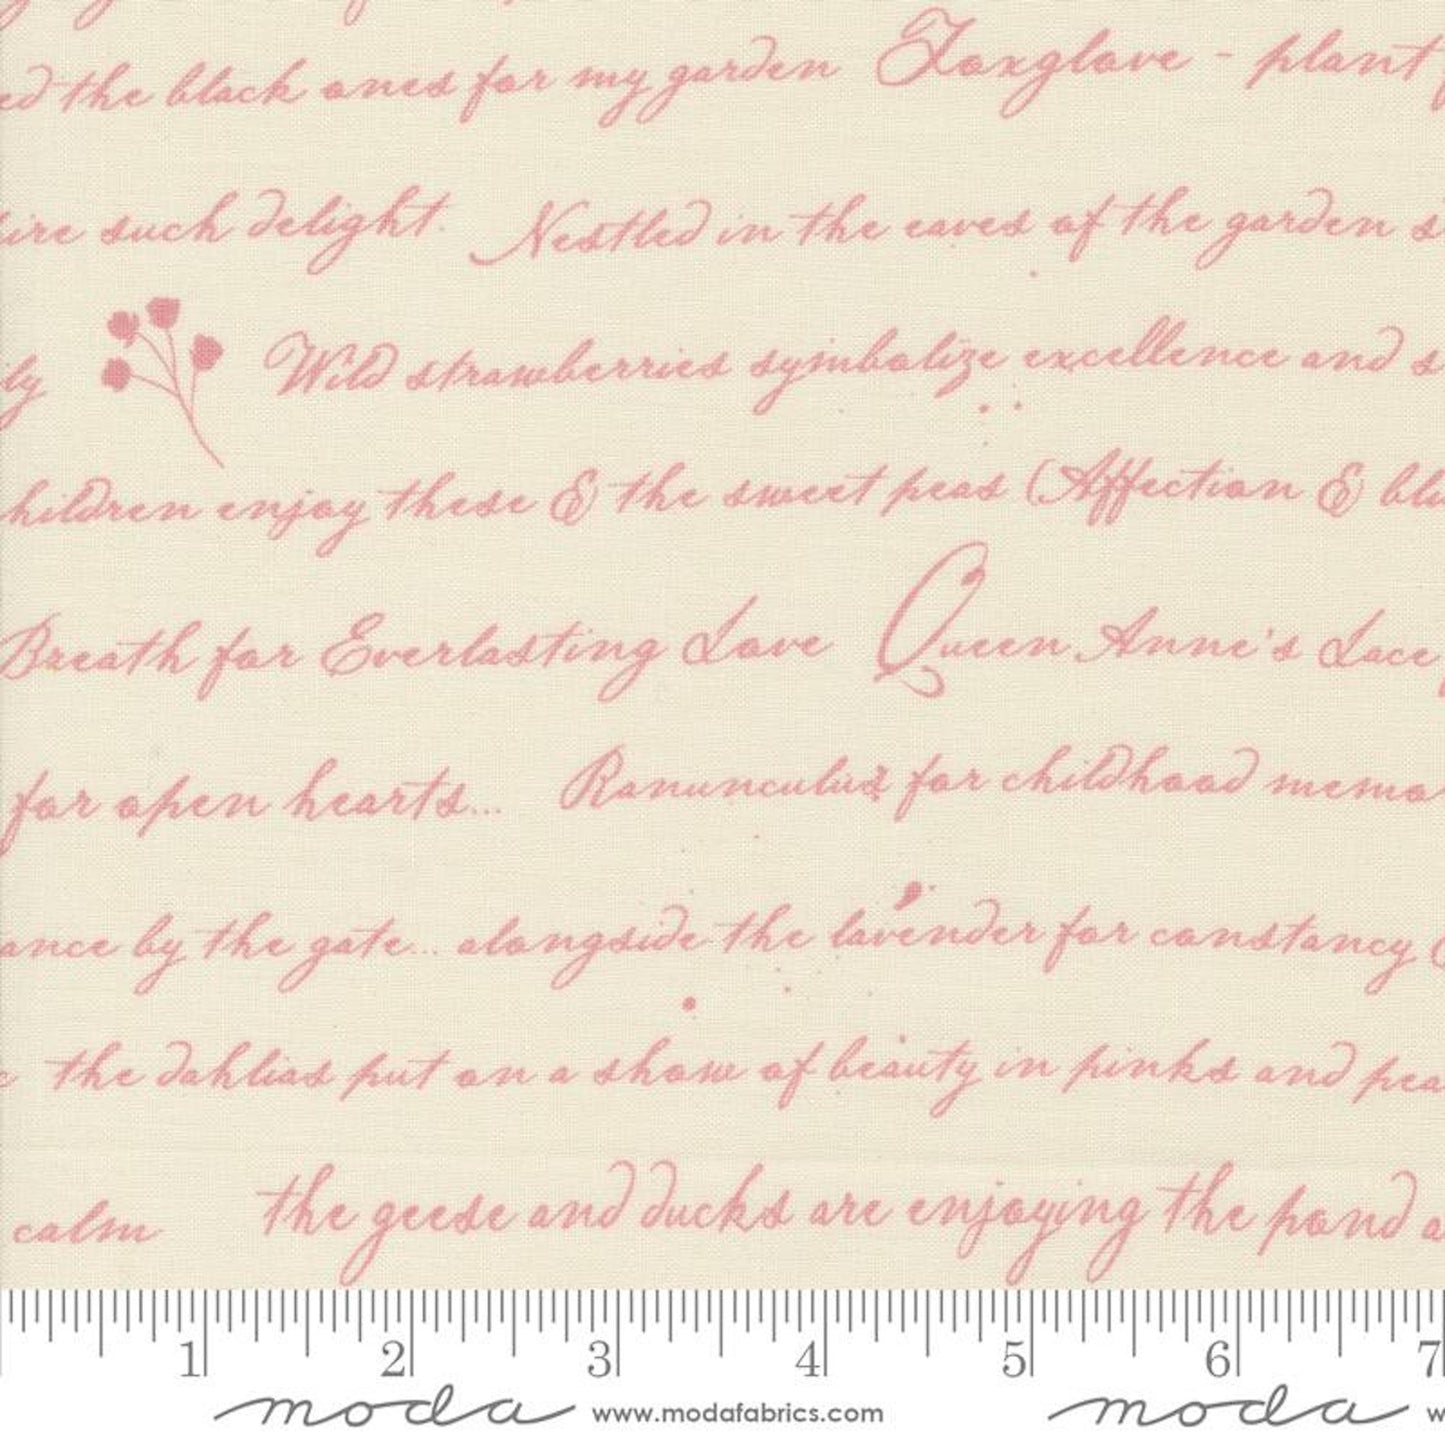 ed the black ones for my garden Foxglove - plant
ire such delight. Nestled in the eaves of the garden s
ily Wild strawberries symbolize excellence and s
hildren enjoy these & the sweet peas (Affection & bl
Breath for Everlasting Love Queen Anne's Lace
for open hearts... Ranunculus for childhood memo
ance by the gate... alongside the lavender for constancy
the dahlias put on a show of beauty in pinks and pea
calm the geese and ducks are enjoying the pond a
1 2 3 4 5 6 7
moda www.modafabrics.com moda w